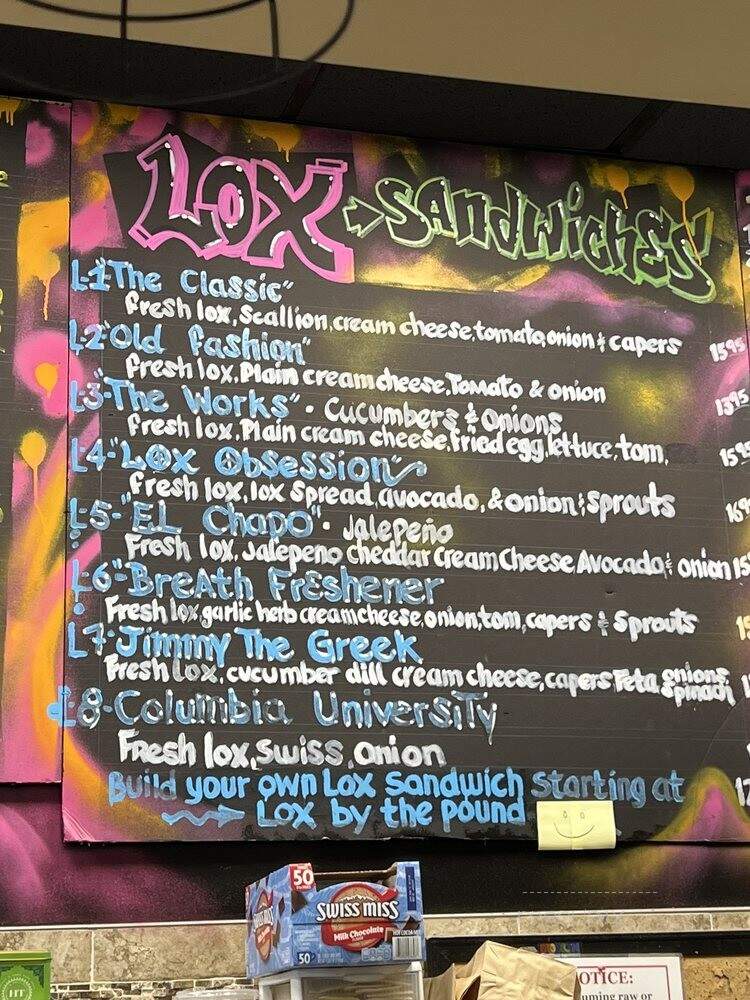 LOX SANDWICHES
L1"The Classic"
Fresh lox, Scallion, cream cheese, tomato, onion & capers 1595
L2"Old fashion"
Fresh lox, Plain cream cheese, Tomato & onion 1395
L3-"The Works" - Cucumbers & Onions
Fresh lox, Plain cream cheese, fried egg, lettuce, tom,
L4-"LOX Obsession"
Fresh lox, lox Spread, avocado, & onion & Sprouts
L5-"EL Chapo" - Jalepeño
Fresh lox, Jalepeno cheddar Cream Cheese Avocado & onion
L6-"Breath Freshener
Fresh lox garlic herb creamcheese, onion, tom, capers & Sprouts
L7-Jimmy The Greek
Fresh Lox, cucumber dill cream cheese, capers Feta onions spinach
L8-Columbia University
Fresh lox, swiss, onion
Build your own Lox Sandwich Starting at
Lox by the pound
50
SWISS MISS
Milk Chocolate
50
HT
NOTICE:
raw or